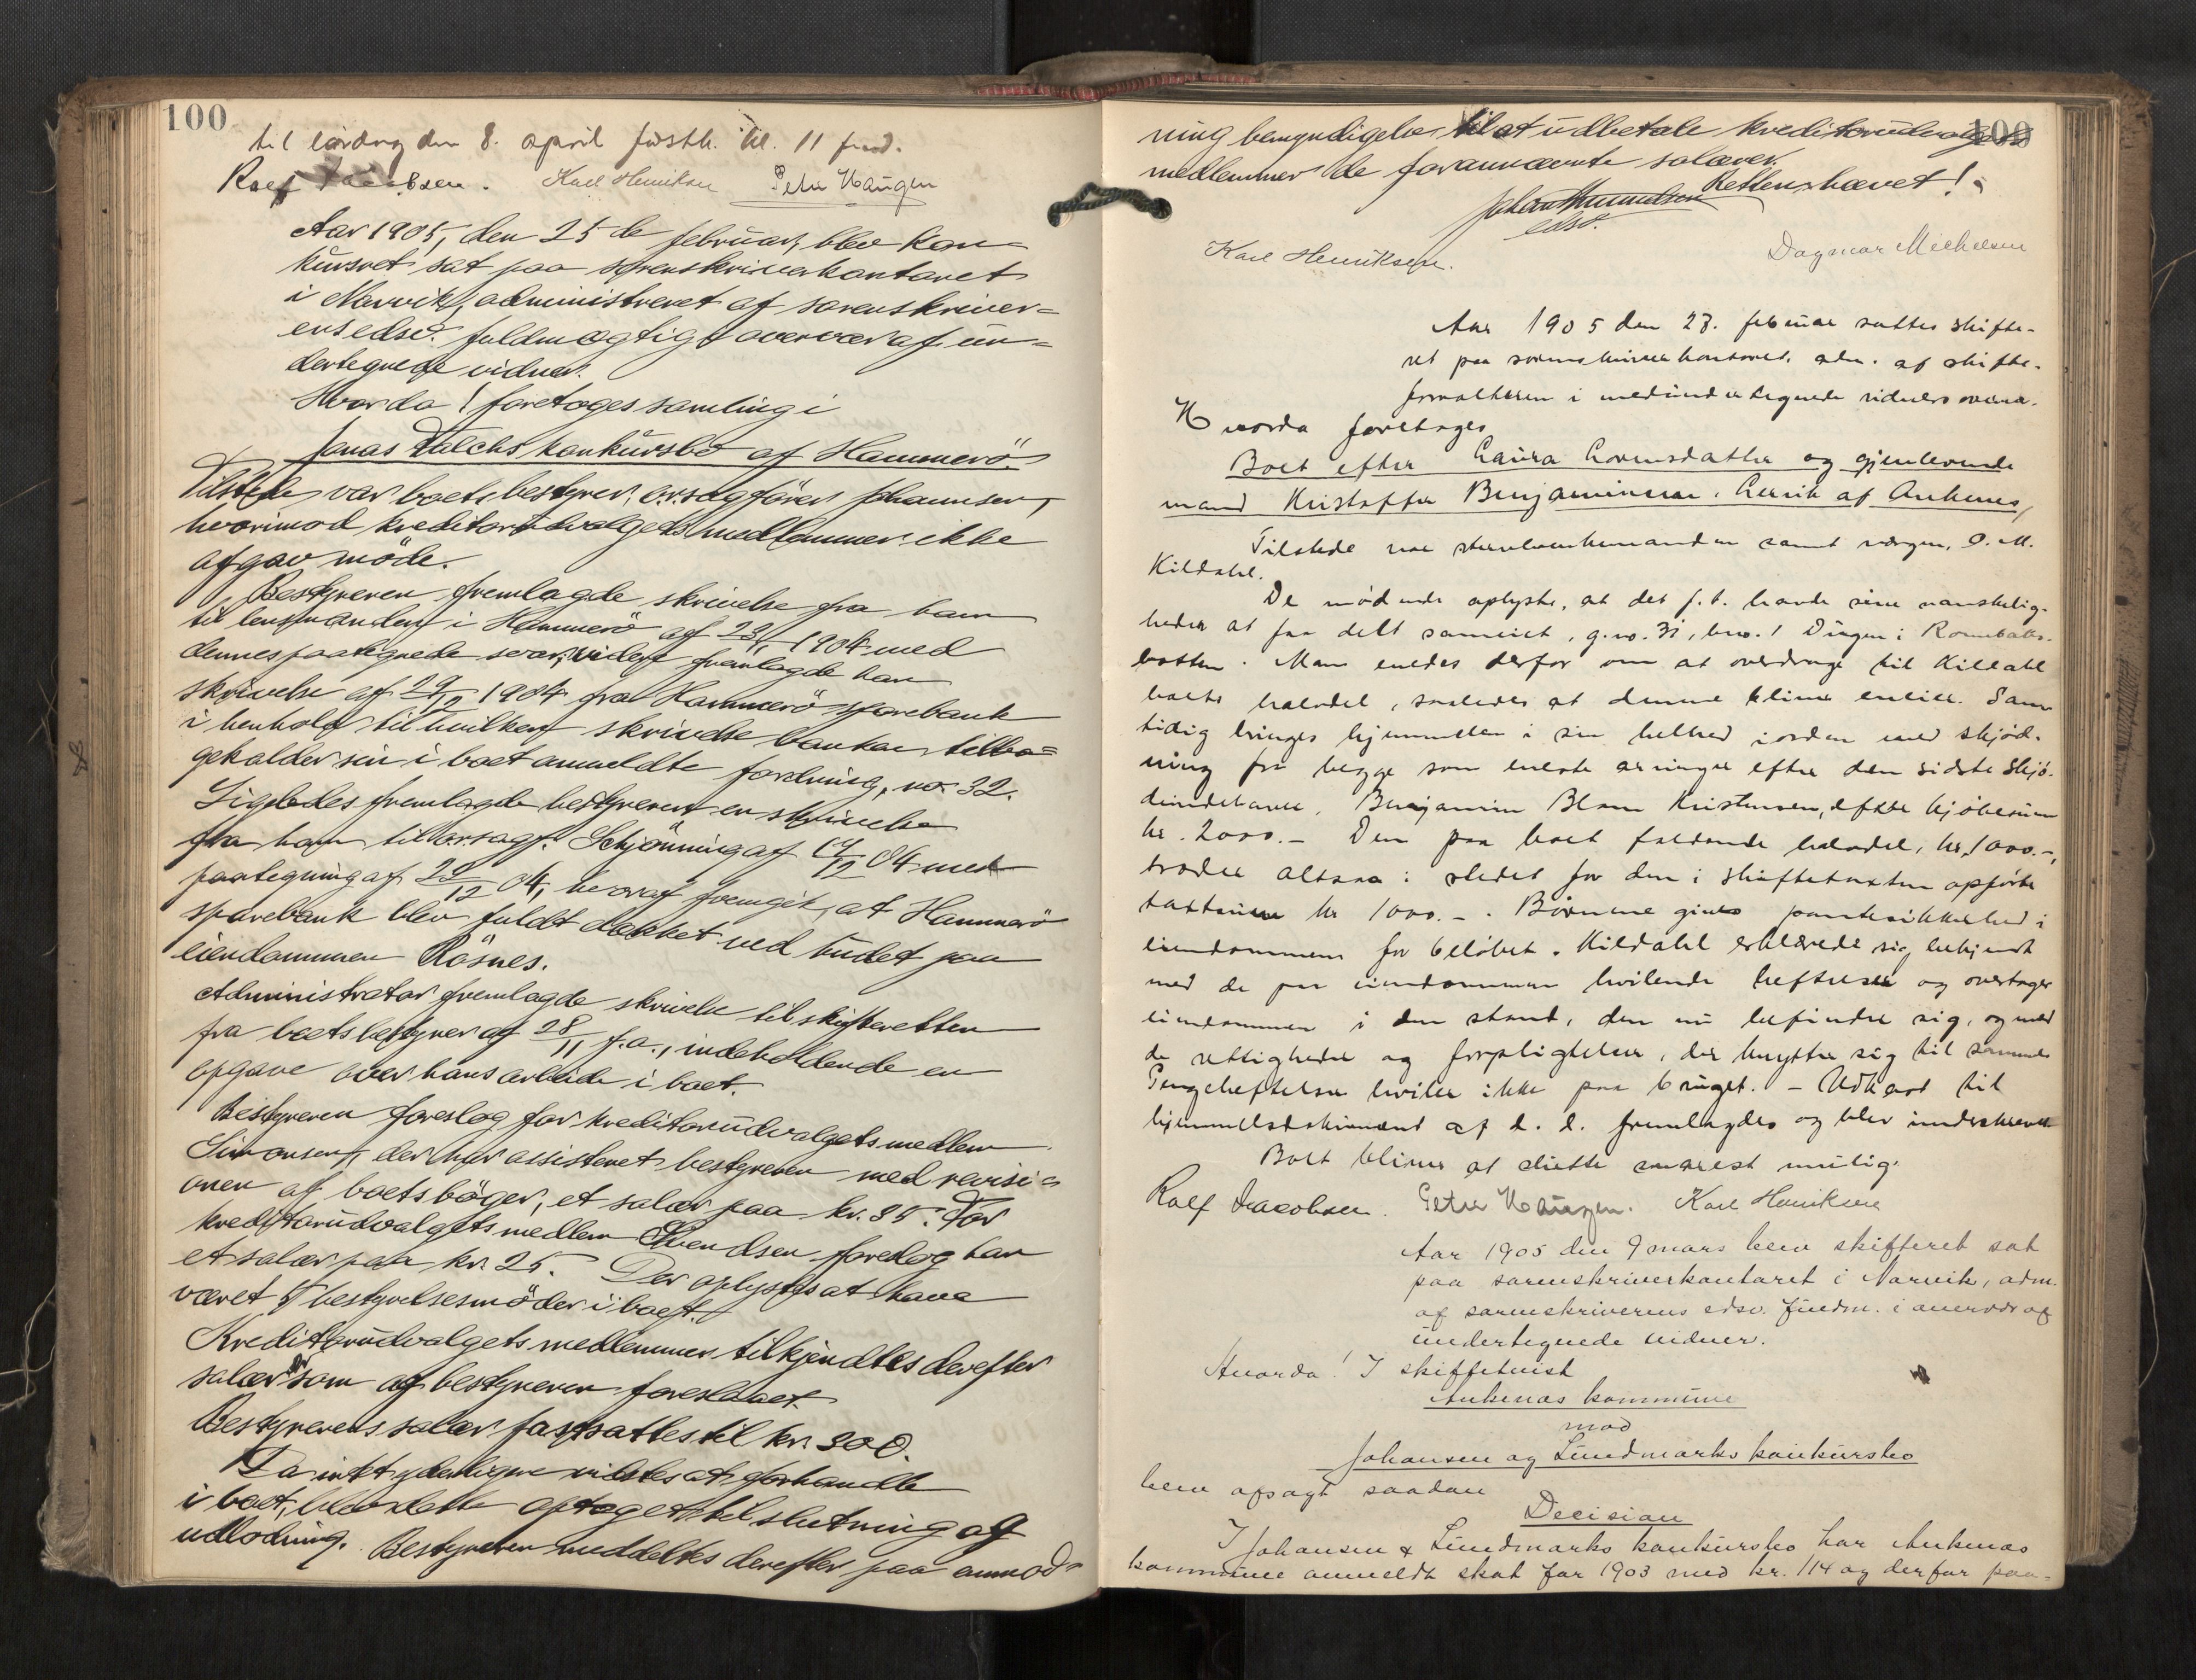 100
til lördag den 8. april förstk. kl. 11 fmd.
Rolf Jacobsen. Karl Henriksen Peter Haugen
Aar 1905, den 25de februar, blev kon-
kursret sat paa sorenskriverkontoret
i Narvik, administreret af sorenskriver-
ens edsv. fuldmægtig i overvær af un-
dertegnede vidner.
Hvorda! foretoges samling i
Jonas Falchs konkursbo af Hammerö.
Tilstede var boets bestyrer, o.r.sagförer Johannsen,
hvorimod kreditorudvalgets medlemmer ikke
afgav möde.
Bestyreren fremlagde skrivelse fra ham
til lensmanden i Hammerö af 23/11 1904 med
dennes paategnede svar; videre fremlagde han
skrivelse af 29/12 1904 fra Hammerö sparebank
i henhold til hvilken skrivelse banken tilba-
gekalder sin i boet anmeldte fordring, no. 32.
Ligeledes fremlagde bestyreren en skrivelse
fra ham til o.r.sagf. Schjönning af 17/12 04 med
paategning af 22/12 04, hvoraf fremgik, at Hammerö
sparebank blev fuldt dækket ved budet paa
eiendommen Rösnes.
Administrator fremlagde skrivelse til skifteretten
fra boets bestyrer af 28/11 f.a., indeholdende en
opgave over hans arbeide i boet.
Bestyreren foreslog for kreditorudvalgets medlem
Simonsen, der har assisteret bestyreren med revisi-
onen af boets böger, et salær paa kr. 35. For
kreditorudvalgets medlem Svendsen foreslog han
et salær paa kr. 25. Der oplystes at have
været bestyrelsesmöder i boet.
Kreditorudvalgets medlemmer tilkjendtes derefter
salær som af bestyreren foreslaaet.
Bestyrerens salær fastsattes til kr. 300.
Da intet yderligere vidstes at forhandle
i boet, blev dette optaget til slutning og
udlodning. Bestyreren meddeltes derefter paa anmod-
100
ning bemyndigelse til at udbetale kreditorudvalgets
medlemmer de forannævnte salærer.
Retten hævet!
Johan Amundsen
edsv.
Karl Henriksen. Dagmar Michelsen
Aar 1905 den 28. februar sattes skifte-
ret paa sorenskriverkontoret, adm. af skifte-
forvalteren i medundertegnede vidners overvær.
Hvorda foretages
Boet efter Laura Lorensdatter og gjenlevende
mand Kristoffer Benjaminsen, Lervik af Ankenes,
Tilstede var sterbboenkemanden samt værgen, O. M.
Kildahl.
De mödende oplyste, at det f. t. havde sine vanskelig-
heder at faa delt sameiet, g.no. 31, bno. 1 Djupen i Rombaks-
botten. Man enedes derfor om at overdrage til Kildahl
boets halvdel, saaledes at denne bliver eneeier. Sam-
tidig bringes hjemmelen i sin helhed iorden med skjöd-
ning fra begge som eneste arvinger efter den sidste skjö-
deindehaver, Benjamin Blom Kristensen, efter kjöbesum
kr. 2000.- Den paa boet faldende halvdel, kr. 1000.-,
træder altsaa i stedet for den i skiftetaxten opförte
taxtsum kr 1000.-. Börnene gives pantesikkerhed i
eiendommen for belöbet. Kildahl erklærede sig bekjendt
med de paa eiendommen hvilende heftelser og overtager
eiendommen i den stand, den nu befinder sig, og med
de rettigheder og forpligtelser, der knytter sig til samme
Pengeheftelser hviler ikke paa bruget. - Udkast til
hjemmelsdokument af d. d. fremlagdes og blev underskrevet
Boet bliver at slutte snarest mulig.
Rolf Jacobsen. Peter Haugen. Karl Henriksen
Aar 1905 den 9 mars blev skifteret sat
paa sorenskriverkontoret i Narvik, adm.
af sorenskriverens edsv. fuldm. i overvær af
undertegnede vidner.
Hvorda! I skiftetvist
Ankenæs kommune
mod
Johansen og Lundmarks konkursbo
blev afsagt saadan
Decision
I Johansen & Lundmarks konkursbo har Ankenæs
kommune anmeldt skat for 1903 med kr. 114 og derfor paa-